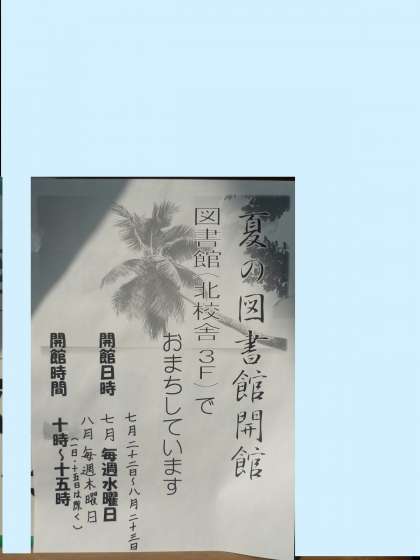 夏の図書館開館
図書館(北校舎3F)で
おまちしています
七月二十二日〜八月二十三日
開館日時 七月 毎週水曜日
八月 毎週木曜日
(一日・十五日は除く)
開館時間 十時〜十五時